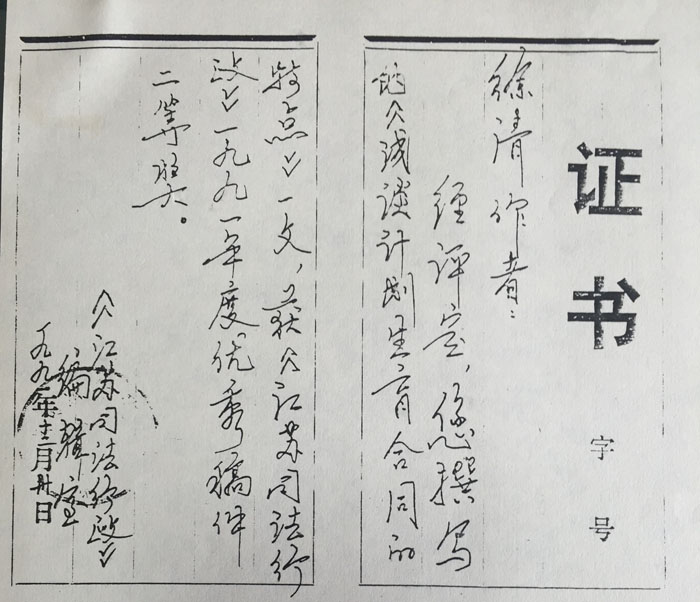 证书
字号
徐清作者：
经评定，您撰写
的《浅谈计划生育合同的
特点》一文，获《江苏司法行
政》一九九一年度优秀稿件
二等奖。
《江苏司法行政》
编辑室
一九九一年十二月卅日